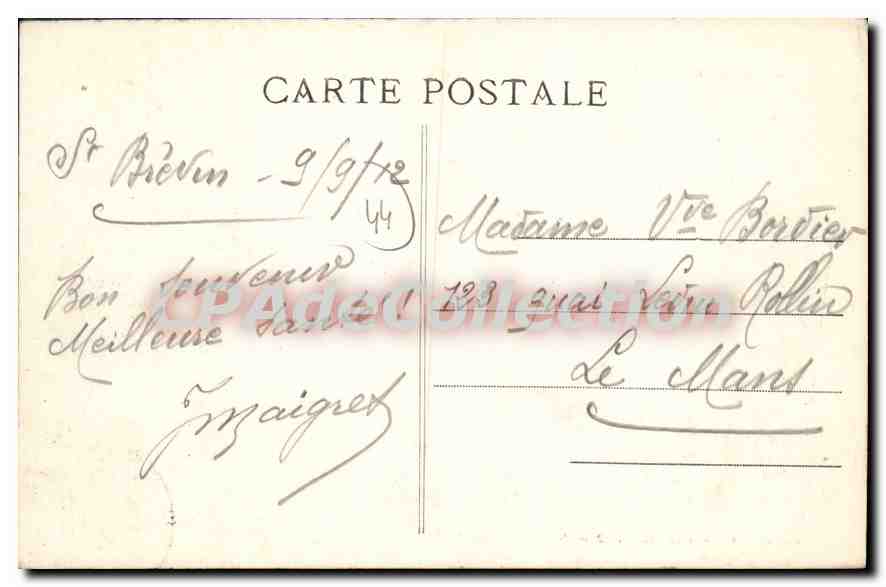 CARTE POSTALE
St Brévin - 9/9/12
44
Bon souvenir
Meilleure santé!
Maigret
Madame Vve Bordier
123 quai Ledru Rollin
Le Mans
CPAdeCollection